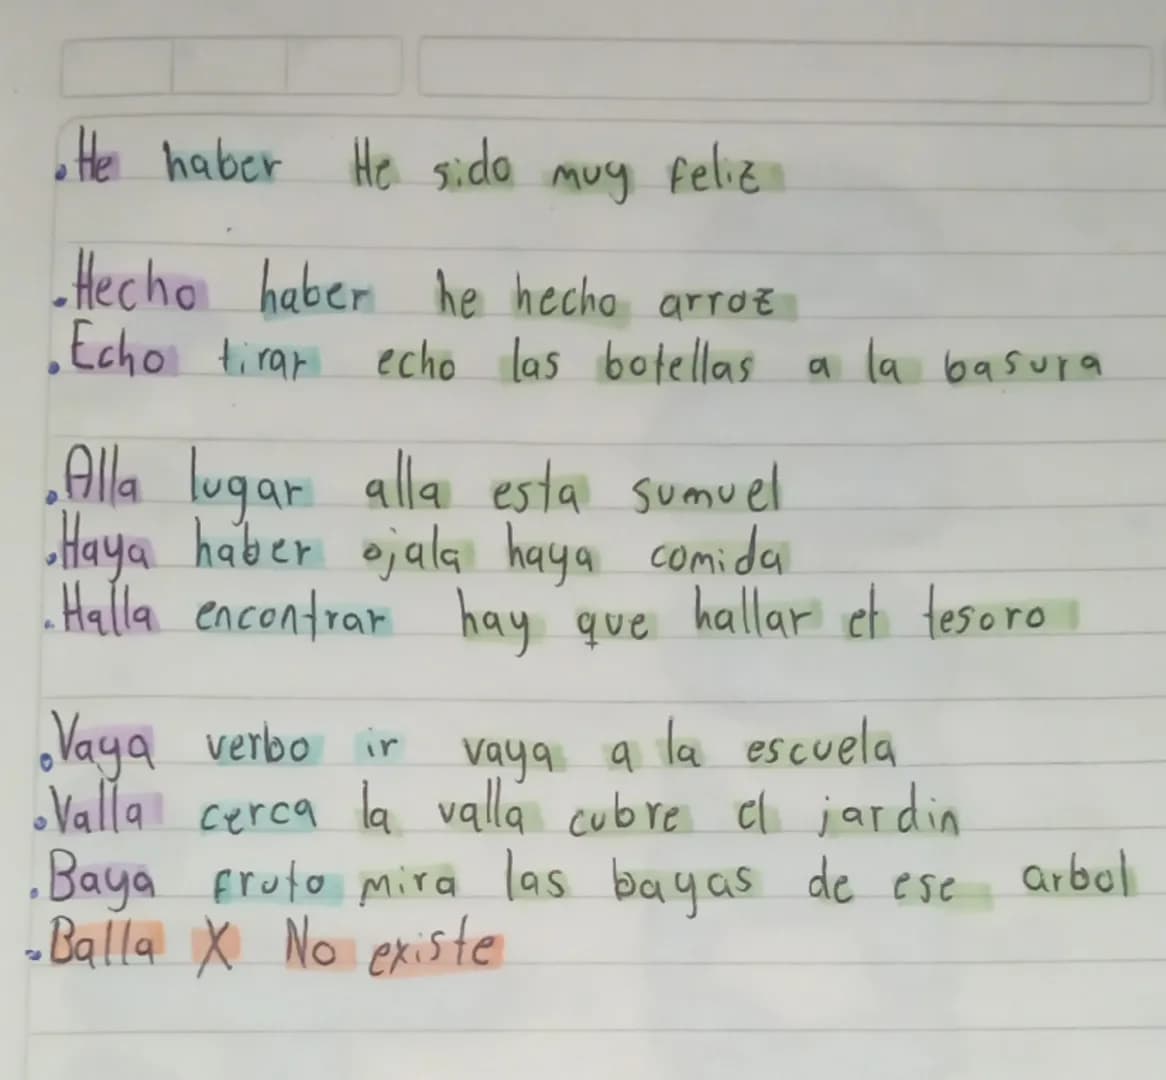 .He haber He sido muy feliz
.Hecho haber he hecho arroz
.Echo tirar echo las botellas a la basura
.Alla lugar alla esta sumuel
.Haya haber ojala haya comida
.Halla encontrar hay que hallar el tesoro
.Vaya verbo ir vaya a la escuela
.Valla cerca la valla cubre el jardin
.Baya fruto mira las bayas de ese arbol
.Balla X No existe